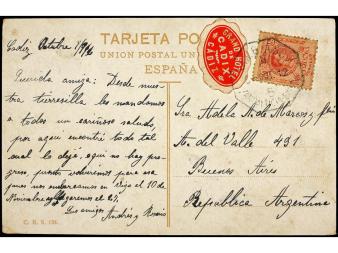 TARJETA PO
UNION POSTAL UNI
ESPAÑA
GRAND HOTEL
DE
CADIX
CADIZ
Cadiz Octubre 1/916
Querida amiga: Desde nues-
tra tierresilla les mandamos
a todos un cariñoso saludo
por aquí encontré todo tal
cual lo dejé, aquí no hay pro-
greso, pronto volveremos para esa
pues nos embarcamos en Vigo el 10 de
Noviembre y llegaremos el 27,
Los amigos Andrés y
Sra Adela A. de Marcos y
Av. del Valle 431
Buenos Aires
Republica Argentina